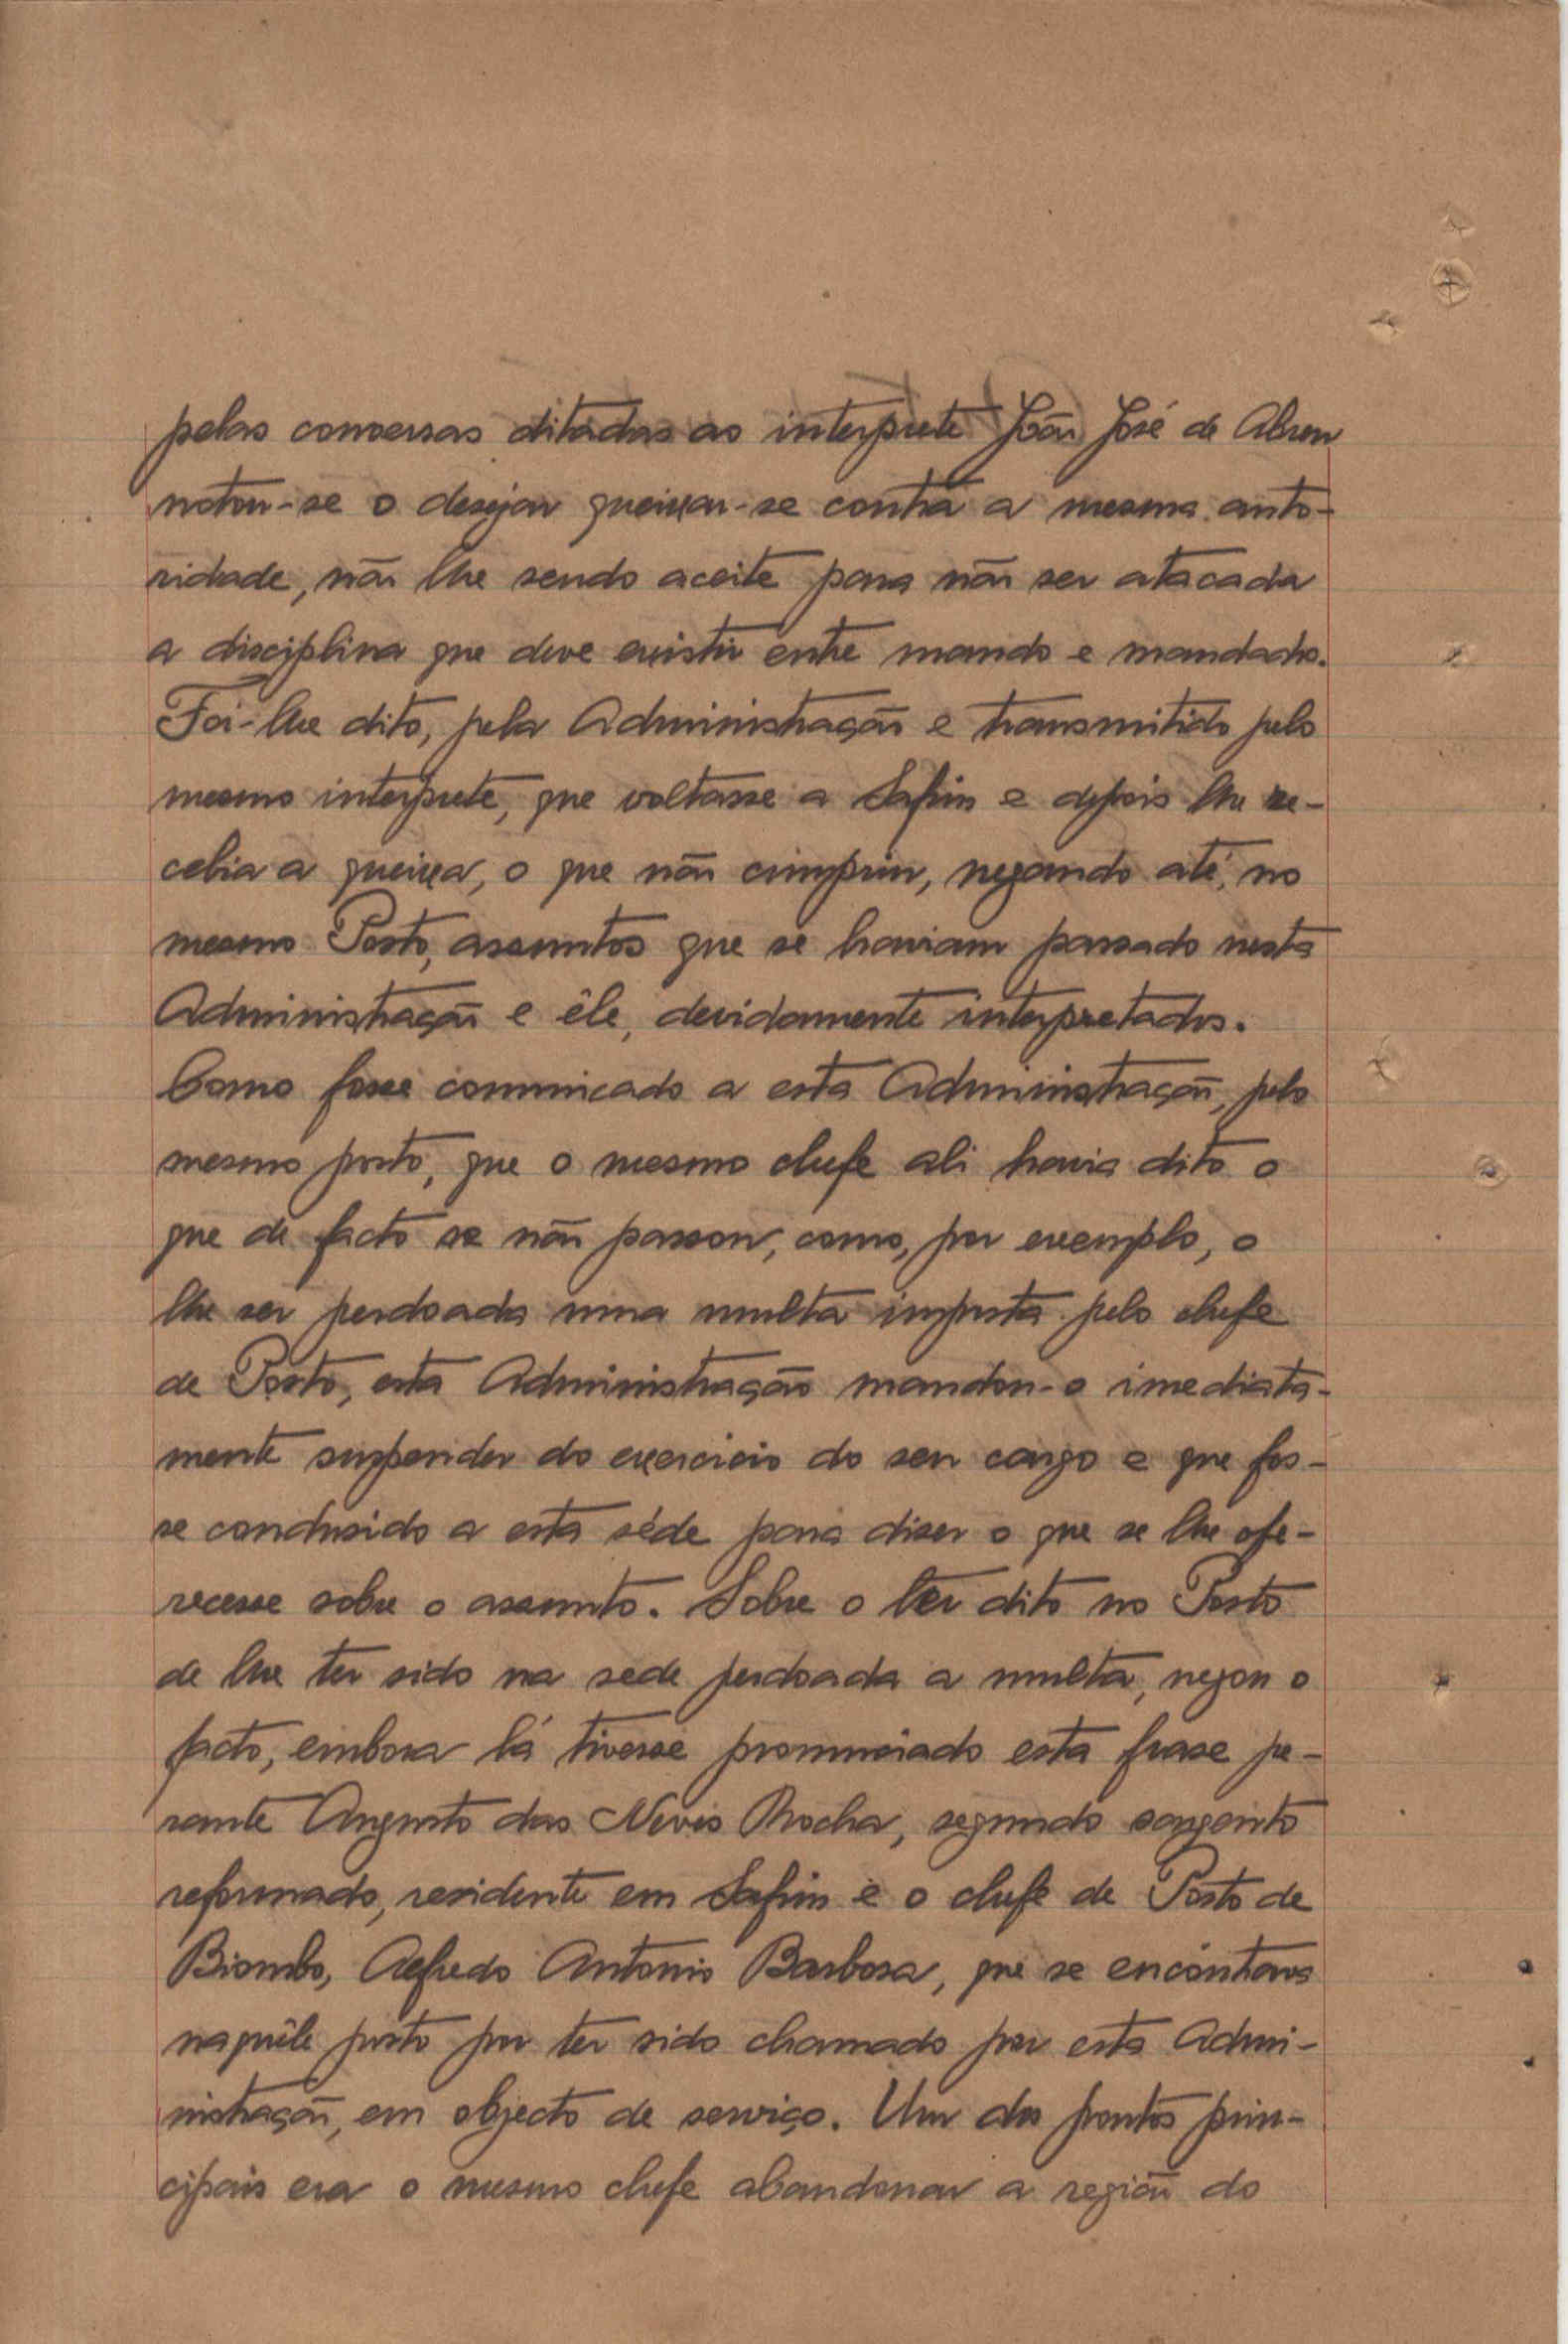 pelas conversas ditadas ao interprete João José de Abreu
notou-se o desejar queixar-se contra a mesma auto-
ridade, não lhe sendo aceite para não ser atacada
a disciplina que deve existir entre mando e mandado.
Foi-lhe dito, pela Administração e transmitido pelo
mesmo interprete, que voltasse a Safim e depois lhe re-
cebia a queixa, o que não cumpriu, negando até, no
mesmo Posto, assuntos que se haviam passado nesta
Administração e êle, devidamente interpretados.
Como fosse comunicado a esta Administração, pelo
mesmo posto, que o mesmo chefe ali havia dito o
que de facto se não passou, como, por exemplo, o
lhe ser perdoada uma multa imposta pelo chefe
de Posto, esta Administração mandou-o imediata-
mente suspender do exercicio do seu cargo e que fos-
se condusido a esta séde para diser o que se lhe ofe-
recesse sobre o assunto. Sobre o ter dito no Posto
de lhe ter sido na sede perdoada a multa, negou o
facto, embora lá tivesse pronunciado esta frase pe-
rante Augusto das Neves Rocha, segundo sargento
reformado, residente em Safim e o chefe de Posto de
Biombo, Alfredo Antonio Barbosa, que se encontrava
naquêle posto por ter sido chamado por esta Admi-
nistração, em objecto de serviço. Um dos pontos prin-
cipais era o mesmo chefe abandonar a região do